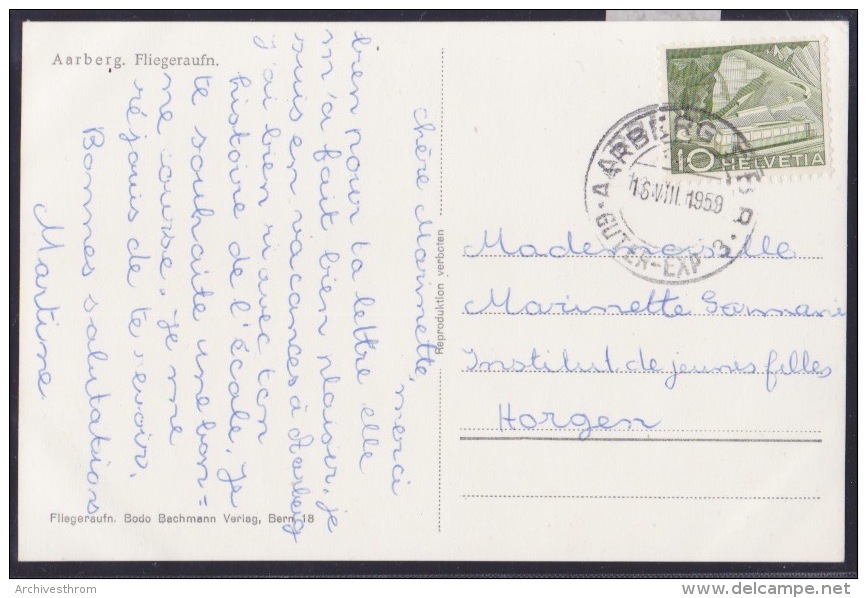 Aarberg. Fliegeraufn.
chère Marinette, merci
bien pour ta lettre elle
m'a fait bien plaisir. je
suis en vacances à Aarberg
j'ai bien ri avec ton
histoire de l'école. Je
te souhaite une bon=
ne course. je me
réjouis de te revoir.
Bonnes salutations
Martine
Fliegeraufn. Bodo Bachmann Verlag, Bern 18
Reproduktion verboten
10 HELVETIA
AARBERG (BERN)
16.VIII.1959
GÜTER-EXP.
Mademoiselle
Marinette
Institut de jeunes filles
Horgen
Archivesthrom
delcampe.net